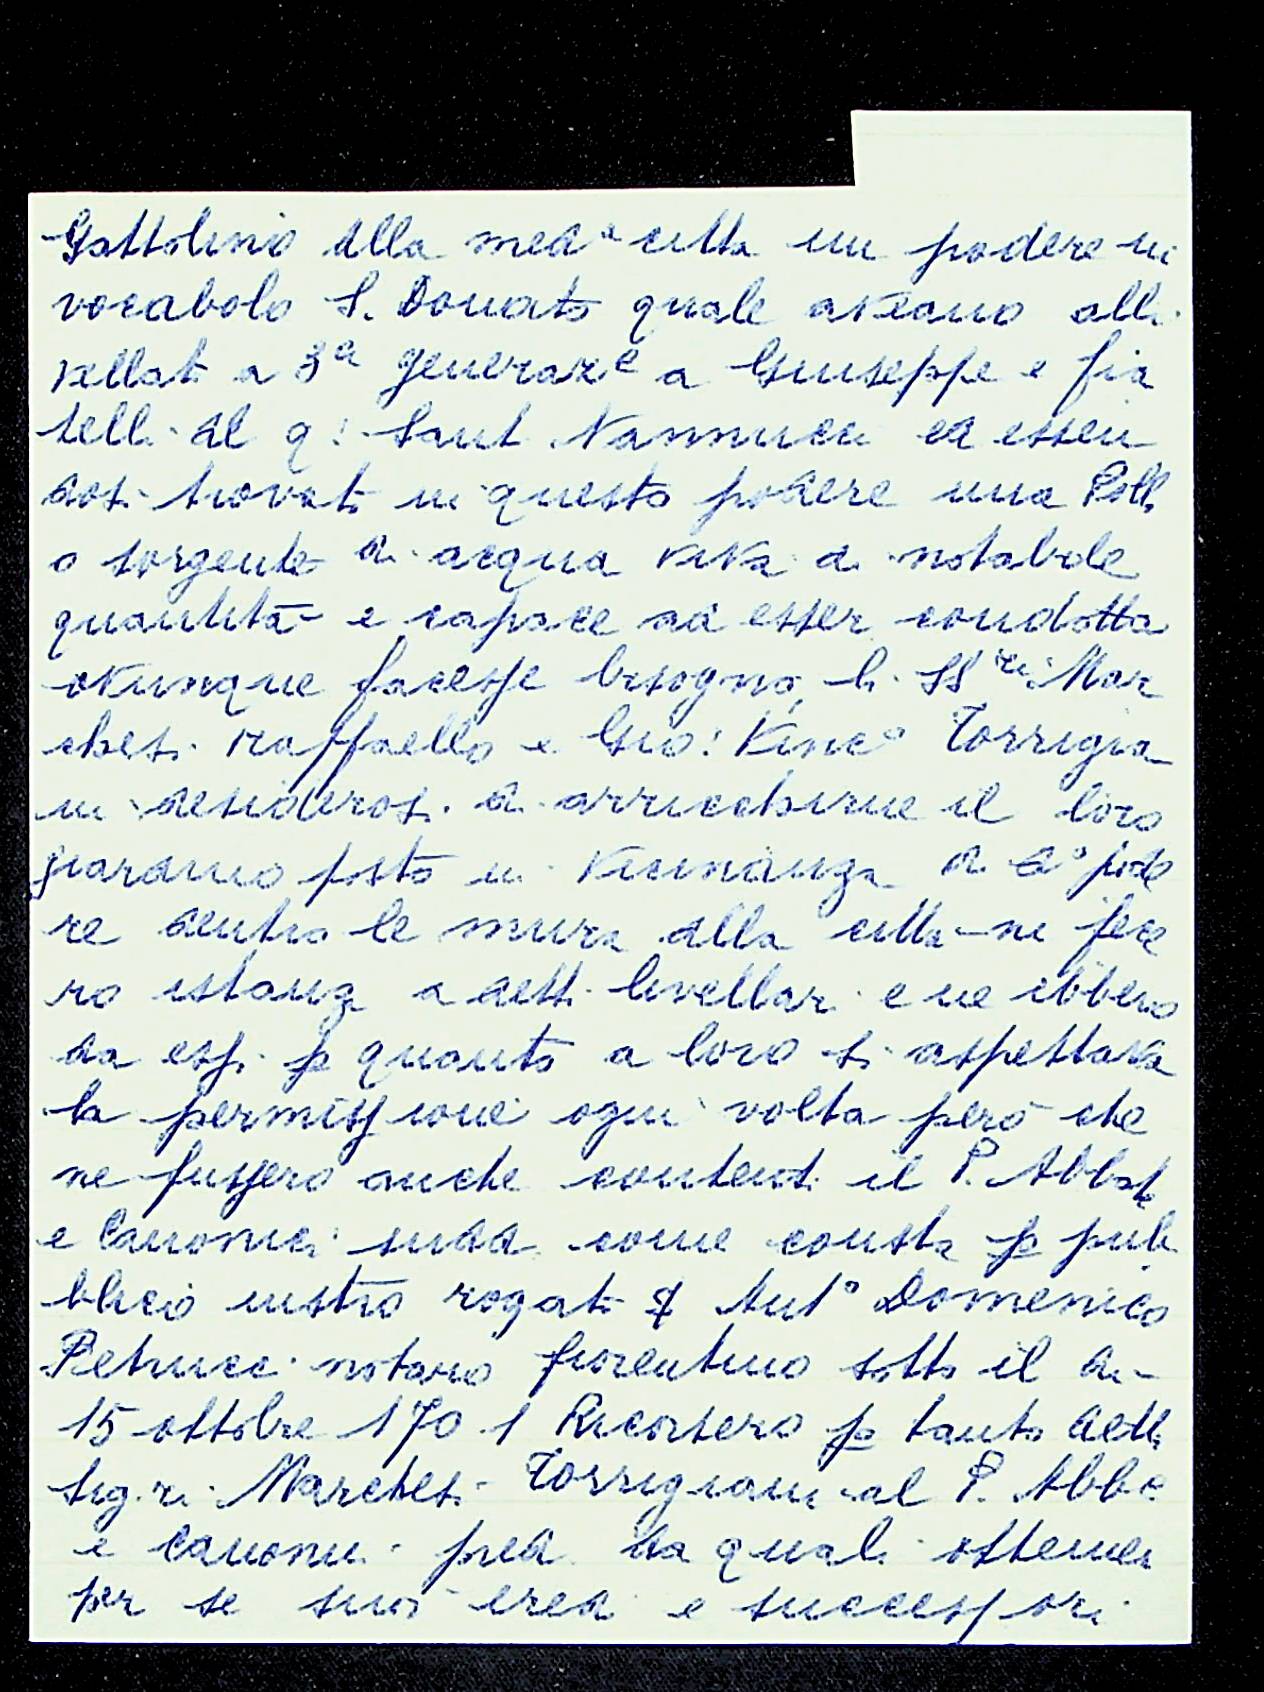 Gattolino della med.a città un podere in
vocabolo S. Donato quale aveano alli
vellato a 3a generaz.e a Giuseppe e fra
telli del q: Sant Nannucci ed essen
dosi trovato in questo podere una Polla
o sorgente di acqua viva di notabile
quantità e capace ad esser condotta
ovunque facesse bisogno, li SS.ri Mar
chesi Raffaello e Gio: Vinc.o Torrigia
ni desiderosi di arricchirne il loro
giardino posto in vicinanza di do pode
re dentro le mura della città ne fece
ro istanza a detti livellari e ne ebbero
da essi p quanto a loro si aspettava
la permissione ogni volta però che
ne fussero anche contenti il P. Abbate
e Canonici sudd. come consta p pub
blico instro rogato Ant.o Domenico
Petrucci notaro fiorentino sotto il di
15 ottobre 1701 Ricorsero p tanto detti
sig.ri Marchesi Torrigiani al P. Abbe
e Canoni pred. da quali ottener
per se suoi eredi e successori